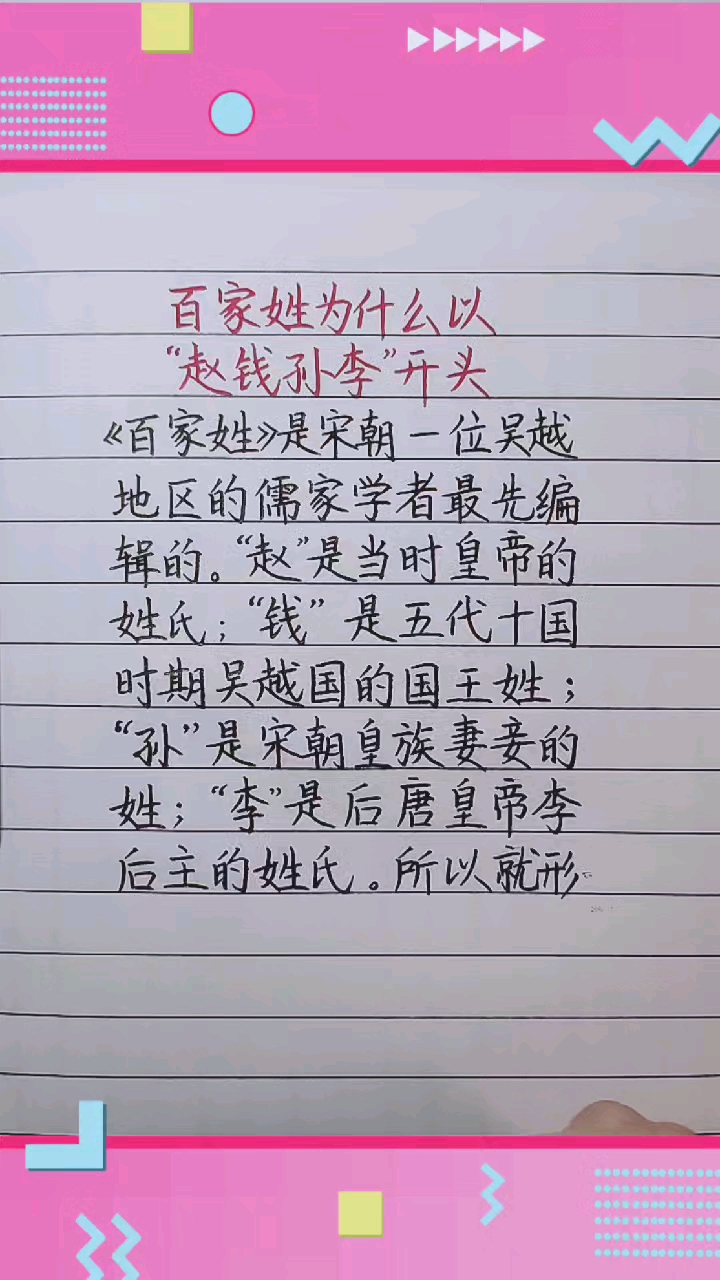 百家姓为什么以
“赵钱孙李”开头
《百家姓》是宋朝一位吴越
地区的儒家学者最先编
辑的。“赵”是当时皇帝的
姓氏；“钱”是五代十国
时期吴越国的国王姓；
“孙”是宋朝皇族妻妾的
姓；“李”是后唐皇帝李
后主的姓氏。所以就形